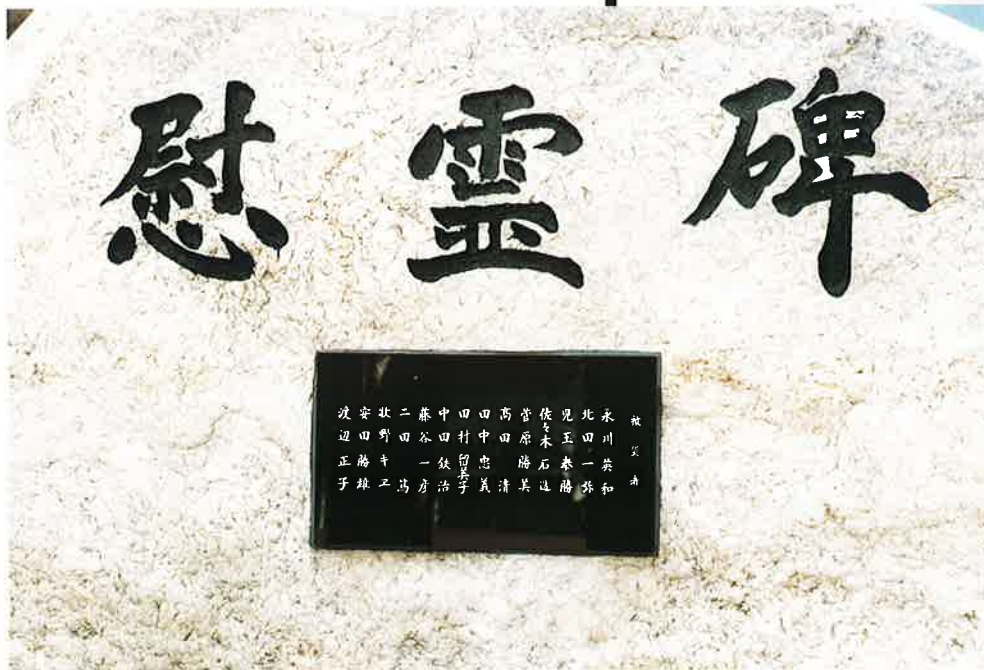 慰霊碑
被災者
永川英和
北田一弥
児玉泰勝
佐々木石造
菅原勝美
高田清
田中忠義
田村留美子
中田鉄治
藤谷一彦
二田篤
牡野キヱ
安田勝雄
渡辺正子